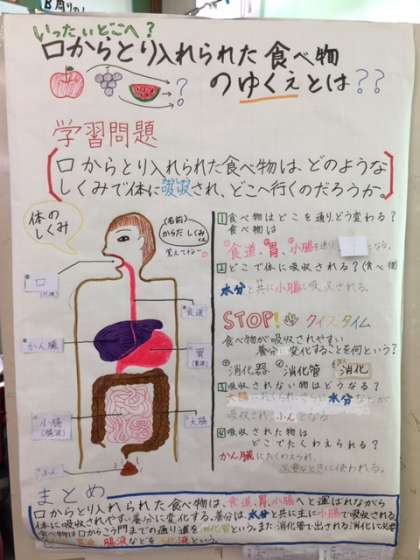 いったいどこへ？
口からとり入れられた食べ物
のゆくえとは？？
？
？
学習問題
口からとり入れられた食べ物は、どのような
しくみで体に吸収され、どこへ行くのだろうか。
体の
しくみ
〈名前〉
からだ しくみ
覚えてね
口
食道
かん臓
胃
小腸
大腸
ふん
1 食べ物はどこを通り、どう変わる？
食べ物は
食道、胃、小腸
2 どこで体に吸収される？（食べ物）
水分と共に小腸に吸収される。
STOP! クイズタイム
食べ物が吸収されやすい
養分に変化することを何という？
消化器 消化管 消化
3 吸収されない物はどうなる？
大腸 水分
吸収され ふんとなる
4 吸収された物は
どこでたくわえられる？
かん臓にたくわえられ
必要なときに使われる。
まとめ
口からとり入れられた食べ物は、食道、胃、小腸へと運ばれながら
体に吸収されやすい養分に変化する。養分は、水分と共に主に小腸で吸収される。
食べ物は口からこう門までの通り道を消化管という。また、消化管で出される消化に必要
腸液などを という。